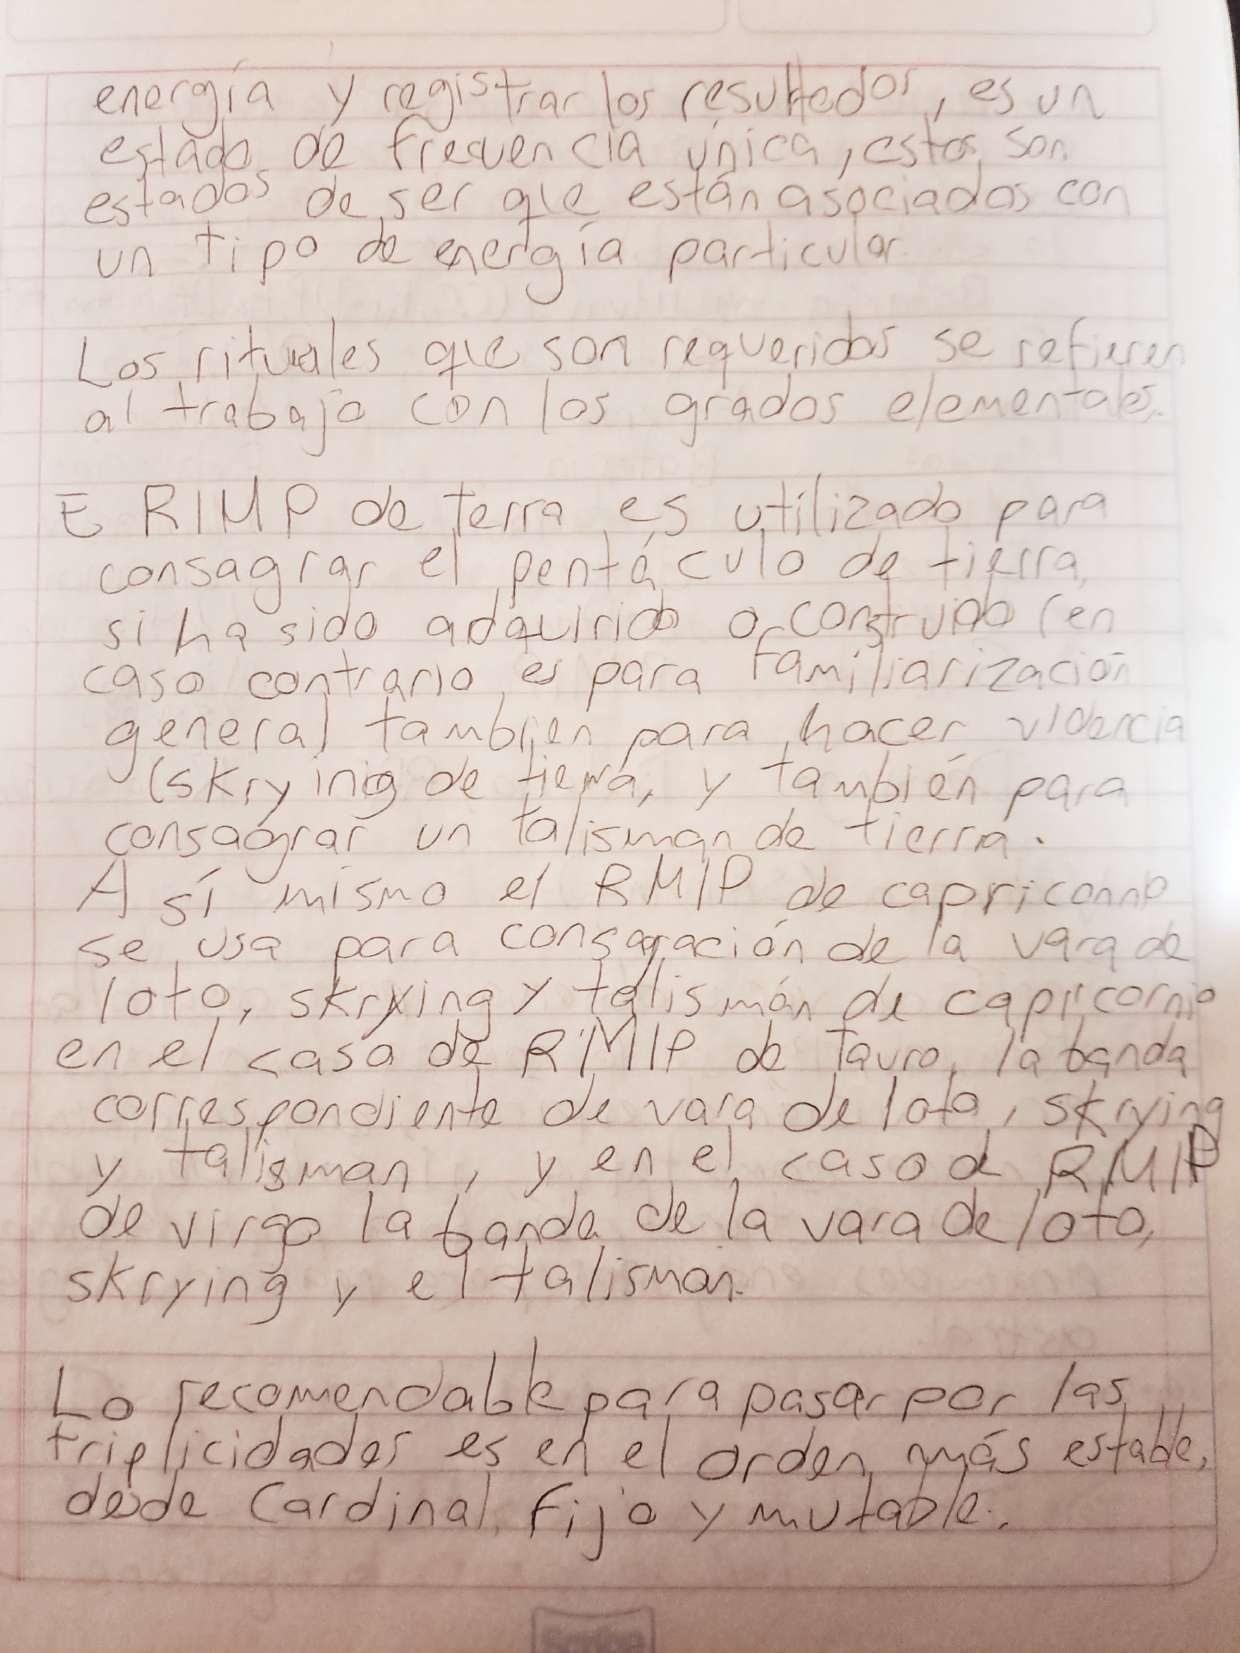 energía y registrar los resultados, es un
estado de frecuencia única, estos son
estados de ser que están asociados con
un tipo de energía particular.
Los rituales que son requeridos se refieren
al trabajo con los grados elementales.
E RIMP de terra es utilizado para
consagrar el pentáculo de tierra,
si ha sido adquirido o construido (en
caso contrario es para familiarización
general) también para hacer videncia
(skrying de tierra, y también para
consagrar un talisman de tierra.
Así mismo el RMIP de capricornio
se usa para consagración de la vara de
loto, skrying y talismán de capricornio
en el caso de RMIP de Tauro, la banda
correspondiente de vara de loto, skrying
y talisman, y en el caso d RMIP
de virgo la banda de la vara de loto,
skrying y el talisman.
Lo recomendable para pasar por las
triplicidades es en el orden más estable,
desde Cardinal, Fijo y mutable.
Scribe